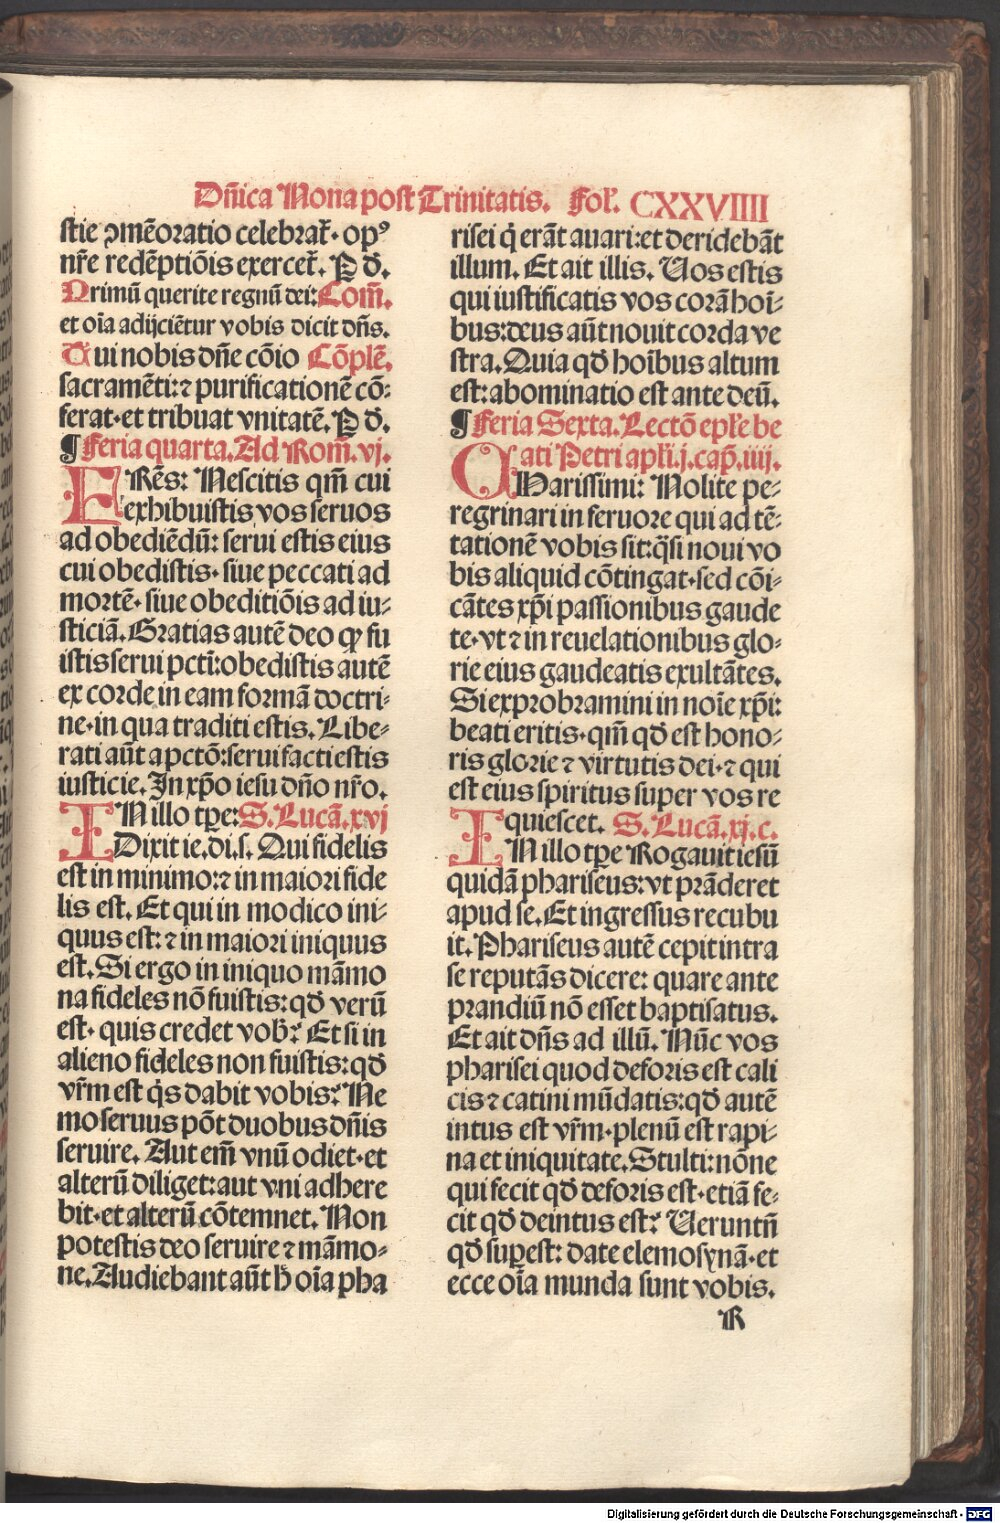 Dñica Nona post Trinitatis. Fol'. CXXVIIII
stie ꝯmẽoratio celebrat᷑. opꝰ
nr̃e redẽptiõis exercet᷑. P d.
Primũ querite regnũ dei: Com̃.
et oĩa adijciẽtur vobis dicit dñs.
Tui nobis dñe cõio Cõplẽ.
sacramẽti: ⁊ purificationẽ cõ⸗
ferat. et tribuat vnitatẽ. P d.
¶ Feria quarta. Ad Rom̃. vj.
ERẽs: Nescitis qm̃ cui
exhibuistis vos seruos
ad obediẽdũ: serui estis eius
cui obedistis. siue peccati ad
mortẽ. siue obeditiõis ad iu⸗
sticiã. Gratias autẽ deo ꝙ fu
istis serui pcti: obedistis autẽ
ex corde in eam formã doctri⸗
ne. in qua traditi estis. Libe⸗
rati aũt a pctõ: serui facti estis
iusticie. In xp̃o iesu dño nr̃o.
IN illo tp̃e: S. Lucã. xvj
Dixit ie. di. s. Qui fidelis
est in minimo: ⁊ in maiori fide
lis est. Et qui in modico ini⸗
quus est: ⁊ in maiori iniquus
est. Si ergo in iniquo mãmo
na fideles nõ fuistis: qd̃ verũ
est. quis credet vob̃? Et si in
alieno fideles non fuistis: qd̃
vr̃m est q̇s dabit vobis? Ne
mo seruus põt duobus dñis
seruire. Aut em̃ vnũ odiet. et
alterũ diliget: aut vni adhere
bit. et alterũ cõtemnet. Non
potestis deo seruire ⁊ mãmo⸗
ne. Audiebant aũt h̃ oĩa pha
risei q̇ erãt auari: et deridebãt
illum. Et ait illis. Vos estis
qui iustificatis vos corã hoĩ⸗
bus: deus aũt nouit corda ve
stra. Quia qd̃ hoĩbus altum
est: abominatio est ante deũ.
¶ Feria Sexta. Lectõ epl'e be
ati Petri apl'i. j. cap̃. iiij.
CHarissimi: Nolite pe⸗
regrinari in feruore qui ad tẽ⸗
tationẽ vobis sit: q̃si noui vo
bis aliquid cõtingat. sed cõi⸗
cãtes xp̃i passionibus gaude
te. vt ⁊ in reuelationibus glo⸗
rie eius gaudeatis exultãtes.
Si exprobramini in noĩe xp̃i:
beati eritis. qm̃ qd̃ est hono⸗
ris glorie ⁊ virtutis dei. ⁊ qui
est eius spiritus super vos re
quiescet. S. Lucã. xj. c.
IN illo tp̃e Rogauit iesũ
quidã phariseus: vt prãderet
apud se. Et ingressus recubu
it. Phariseus autẽ cepit intra
se reputãs dicere: quare ante
prandiũ nõ esset baptisatus.
Et ait dñs ad illũ. Nũc vos
pharisei quod deforis est cali
cis ⁊ catini mũdatis: qd̃ autẽ
intus est vr̃m. plenũ est rapi⸗
na et iniquitate. Stulti: nõne
qui fecit qd̃ deforis est. etiã fe⸗
cit qd̃ deintus est? Veruntñ
qd̃ suꝑest: date elemosynã. et
ecce oĩa munda sunt vobis.
R
Digitalisierung gefördert durch die Deutsche Forschungsgemeinschaft - DFG